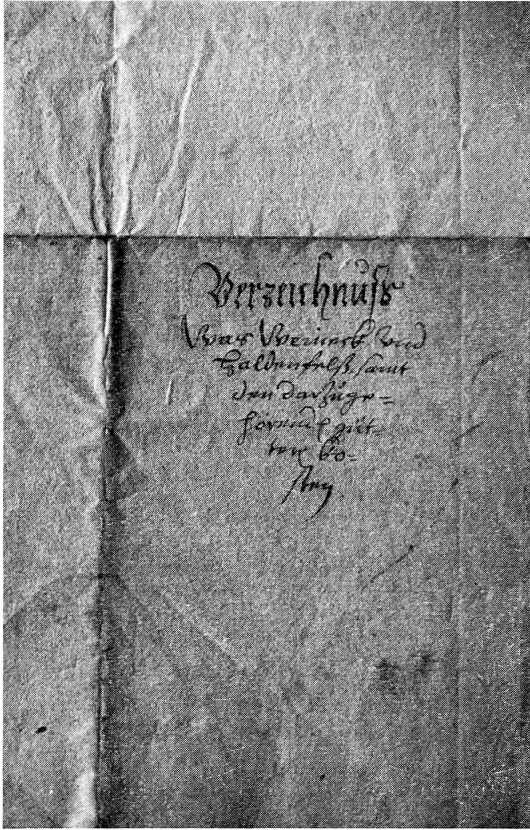 Verzeichnuß
Was Weineck Vnd
Haldenfelß, samt
den darzuge-
hörend[en] güt-
tern ko-
sten